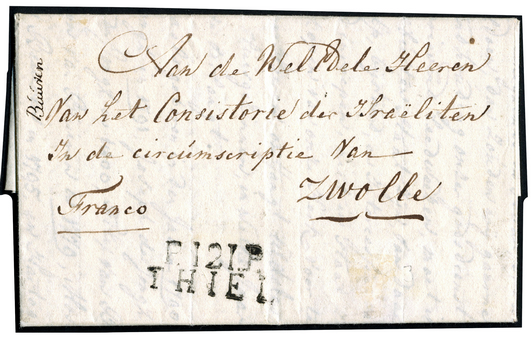 Büüren
Aan de Wel Edele Heeren
Van het Consistorie der Israëliten
In de circúmscriptie Van
Zwolle
Franco
P.121.P.
THIEL